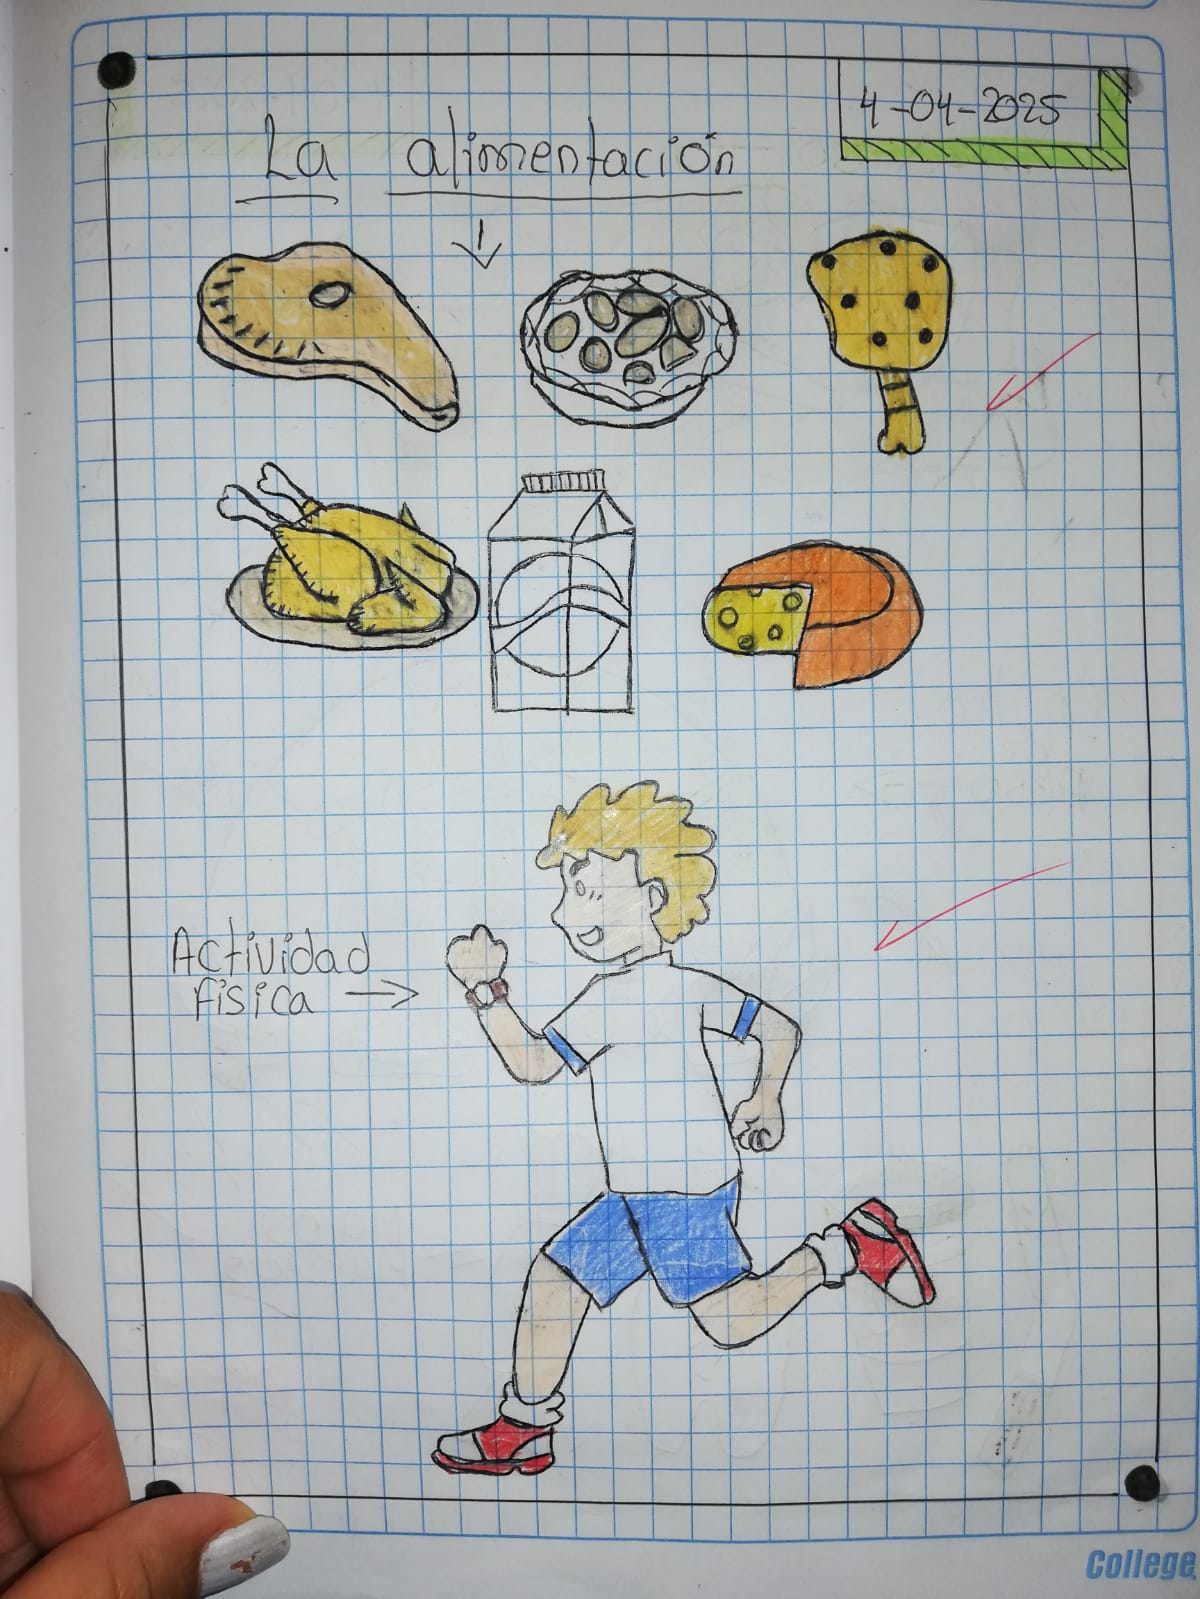 4-04-2025
La alimentación
Actividad
física
College